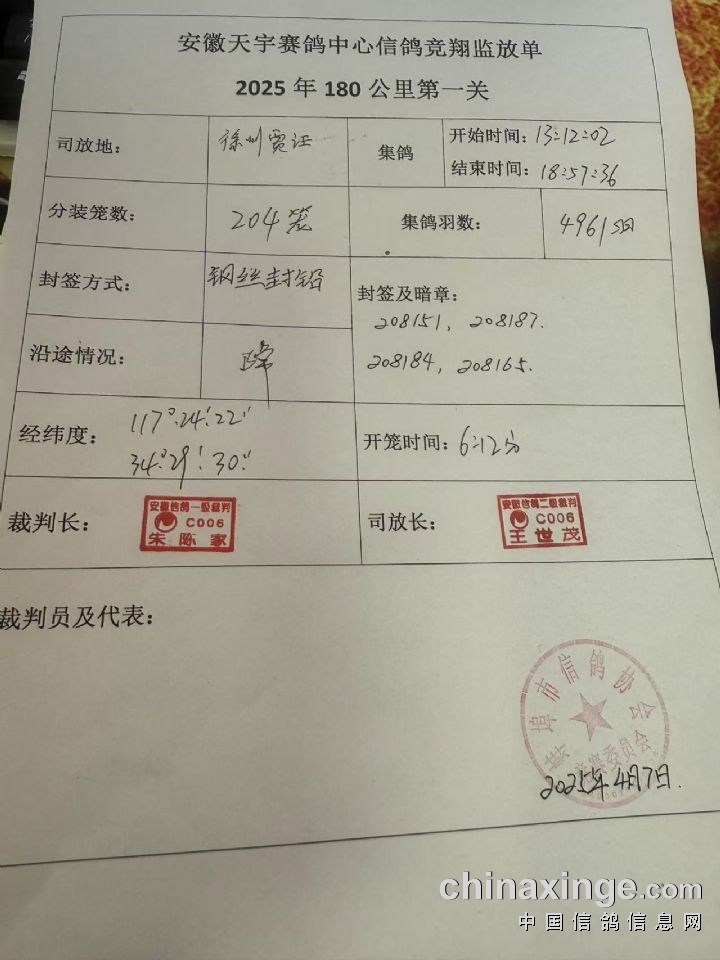 安徽天宇赛鸽中心信鸽竞翔监放单
2025 年 180 公里第一关
司放地：
徐州贾汪
集鸽
开始时间：13:12:02
结束时间：18:57:36
分装笼数：
204笼
集鸽羽数：
4961羽
封签方式：
钢丝封铅
封签及暗章：
208151，208187.
208184，208165.
沿途情况：
正常
经纬度：
117°.24'.22"
34°.29'.30"
开笼时间：6:12分
裁判长：
安徽信鸽一级裁判
C006
朱陈家
司放长：
安徽信鸽二级裁判
C006
王世茂
裁判员及代表：
蚌埠市信鸽协会
竞赛委员会
2025年4月7日.
chinaxinge.com
中国信鸽信息网